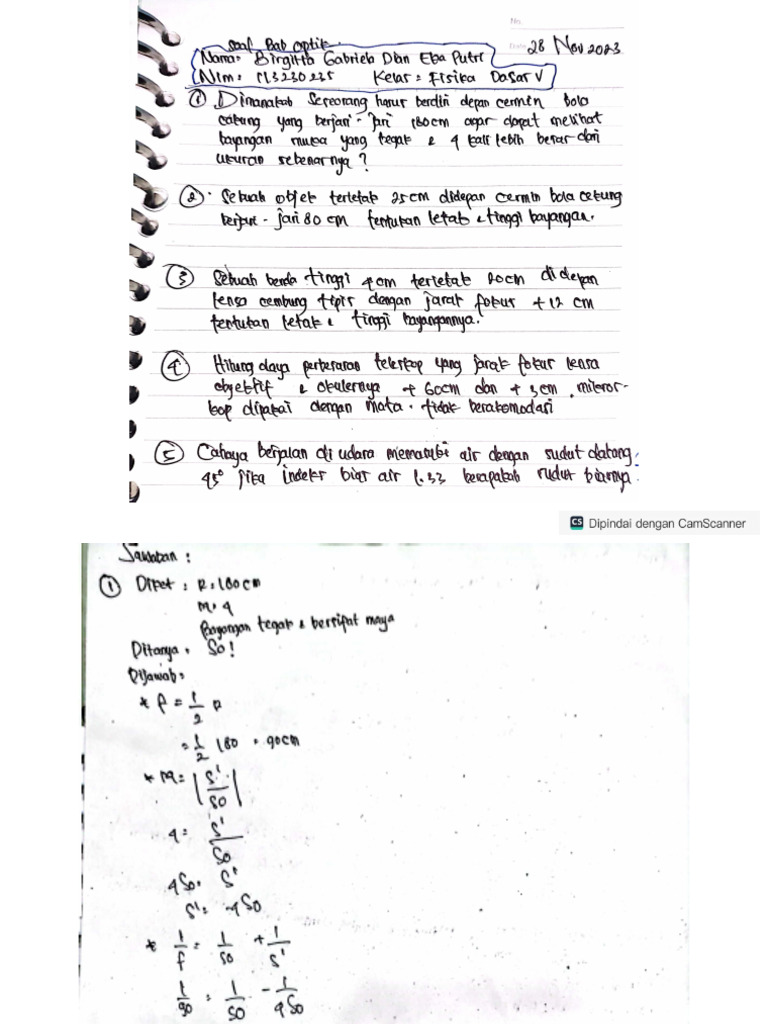 No.
Date 28 Nov 2023
Soal Bab Optik.
Nama: Birgitta Gabriela Dian Eka Putri
Nim : M3230235 Kelas : Fisika Dasar V
① Dimanakah Seseorang harus berdiri depan cermin bola
cekung yang berjari-jari 180cm agar dapat melihat
bayangan muka yang tegak & 4 kali lebih besar dari
ukuran sebenarnya ?
②. Sebuah objek terletak 25cm didepan cermin bola cekung
berjari-jari 80 cm tentukan letak & tinggi bayangan.
③ Sebuah benda tinggi 4cm terletak 20cm di depan
lensa cembung tipis dengan jarak fokus +12 cm
tentukan letak & tinggi bayangannya.
④ Hitung daya perbesaran teleskop yang jarak fokus lensa
objektif & okulernya + 60cm dan + 3cm, mikros-
kop dipakai dengan mata. tidak berakomodasi
⑤ Cahaya berjalan di udara memasuki air dengan sudut datang
45° jika indeks bias air 1.33 berapakah sudut biasnya.
CS Dipindai dengan CamScanner
Jawaban :
① Diket : R = 180cm
M = 4
Bayangan tegak & bersifat maya
Ditanya : So!
Dijawab :
* f = 1/2 R
= 1/2 180 = 90cm
* M = |s'/so|
4 = s'/so
4So = s'
s' = -4So
* 1/f = 1/so + 1/s'
1/90 = 1/so - 1/4So